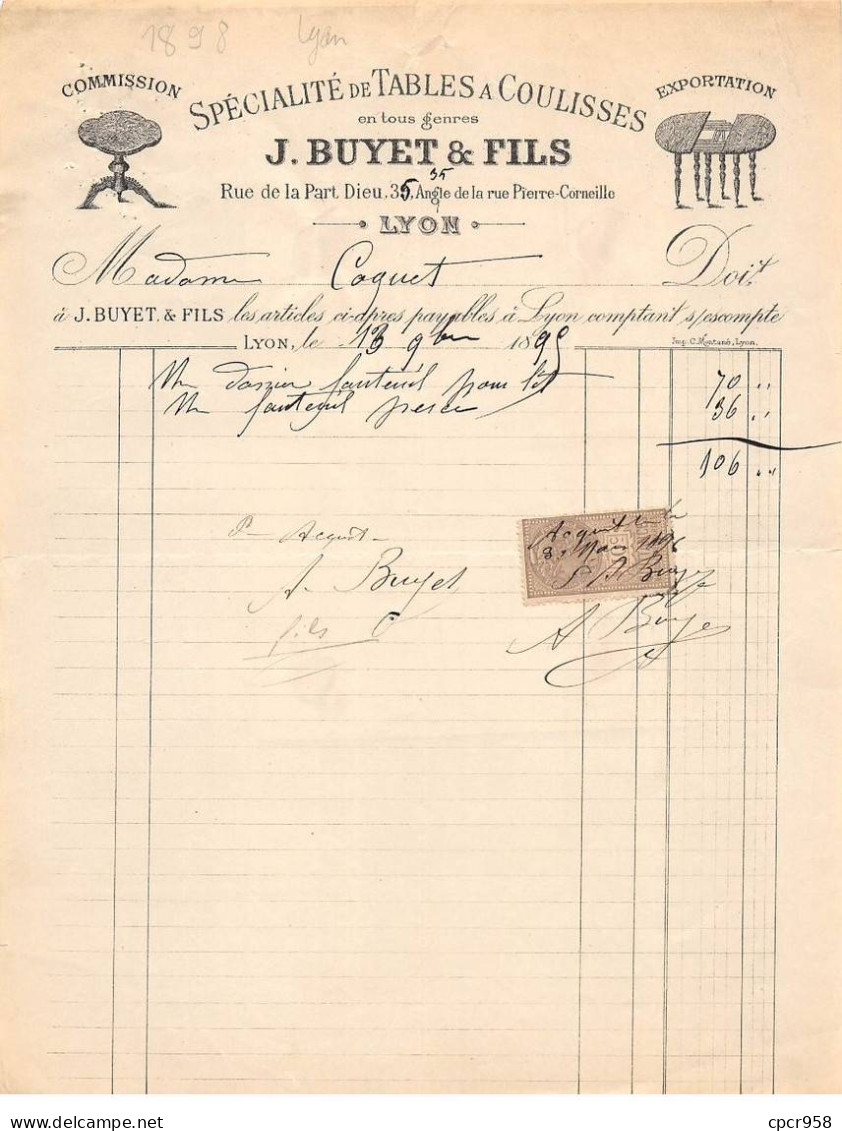 1898 Lyon
COMMISSION
EXPORTATION
SPÉCIALITÉ DE TABLES A COULISSES
en tous genres
J. BUYET & FILS
35
Rue de la Part Dieu, 35, Angle de la rue Pierre-Corneille
LYON
Madame Coquet Doit
à J. BUYET, & FILS les articles ci-après payables à Lyon comptant s/escompte
LYON, le 13 9bre 1895
Imp. C. Montané, Lyon.
Un dossier fauteuil pour lit 70 "
Un fauteuil percé 36 "
106 "
Pr Acquit
A. Buyet
fils
Acquit le
8 Mars 1896
P A Buyet
A Buyet
cpcr958